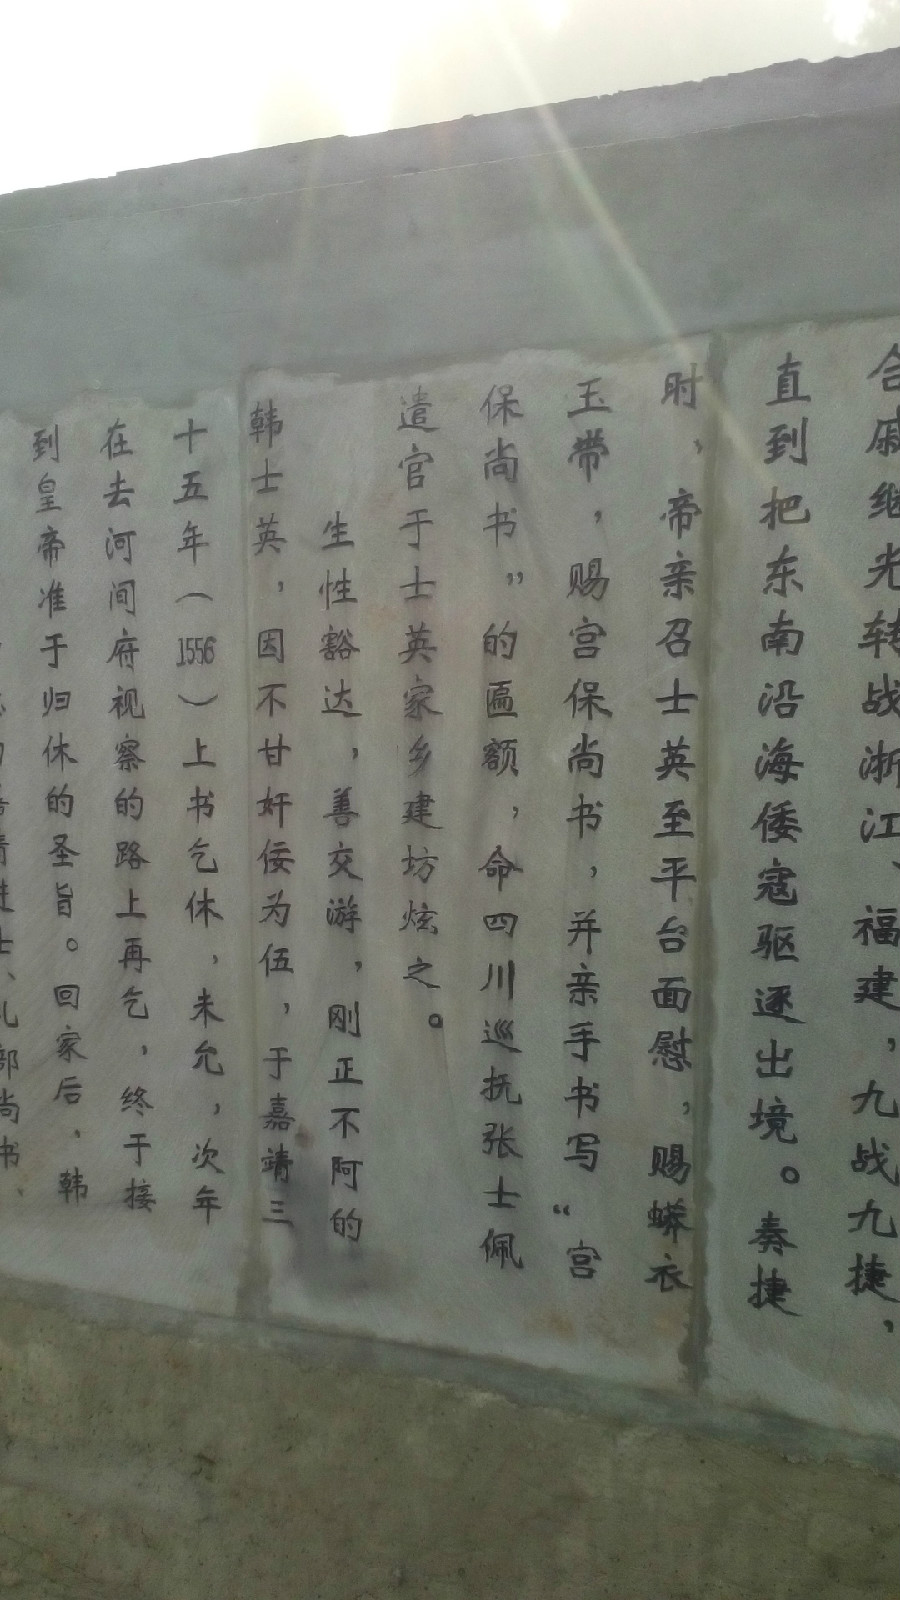 合戚继光转战浙江、福建，九战九捷，
直到把东南沿海倭寇驱逐出境。奏捷
时，帝亲召士英至平台面慰，赐蟒衣
玉带，赐宫保尚书，并亲手书写“宫
保尚书”的匾额，命四川巡抚张士佩
遣官于士英家乡建坊炫之。
生性豁达，善交游，刚正不阿的
韩士英，因不甘奸佞为伍，于嘉靖三
十五年（1556）上书乞休，未允，次年
在去河间府视察的路上再乞，终于接
到皇帝准于归休的圣旨。回家后，韩
进士、礼部尚书、